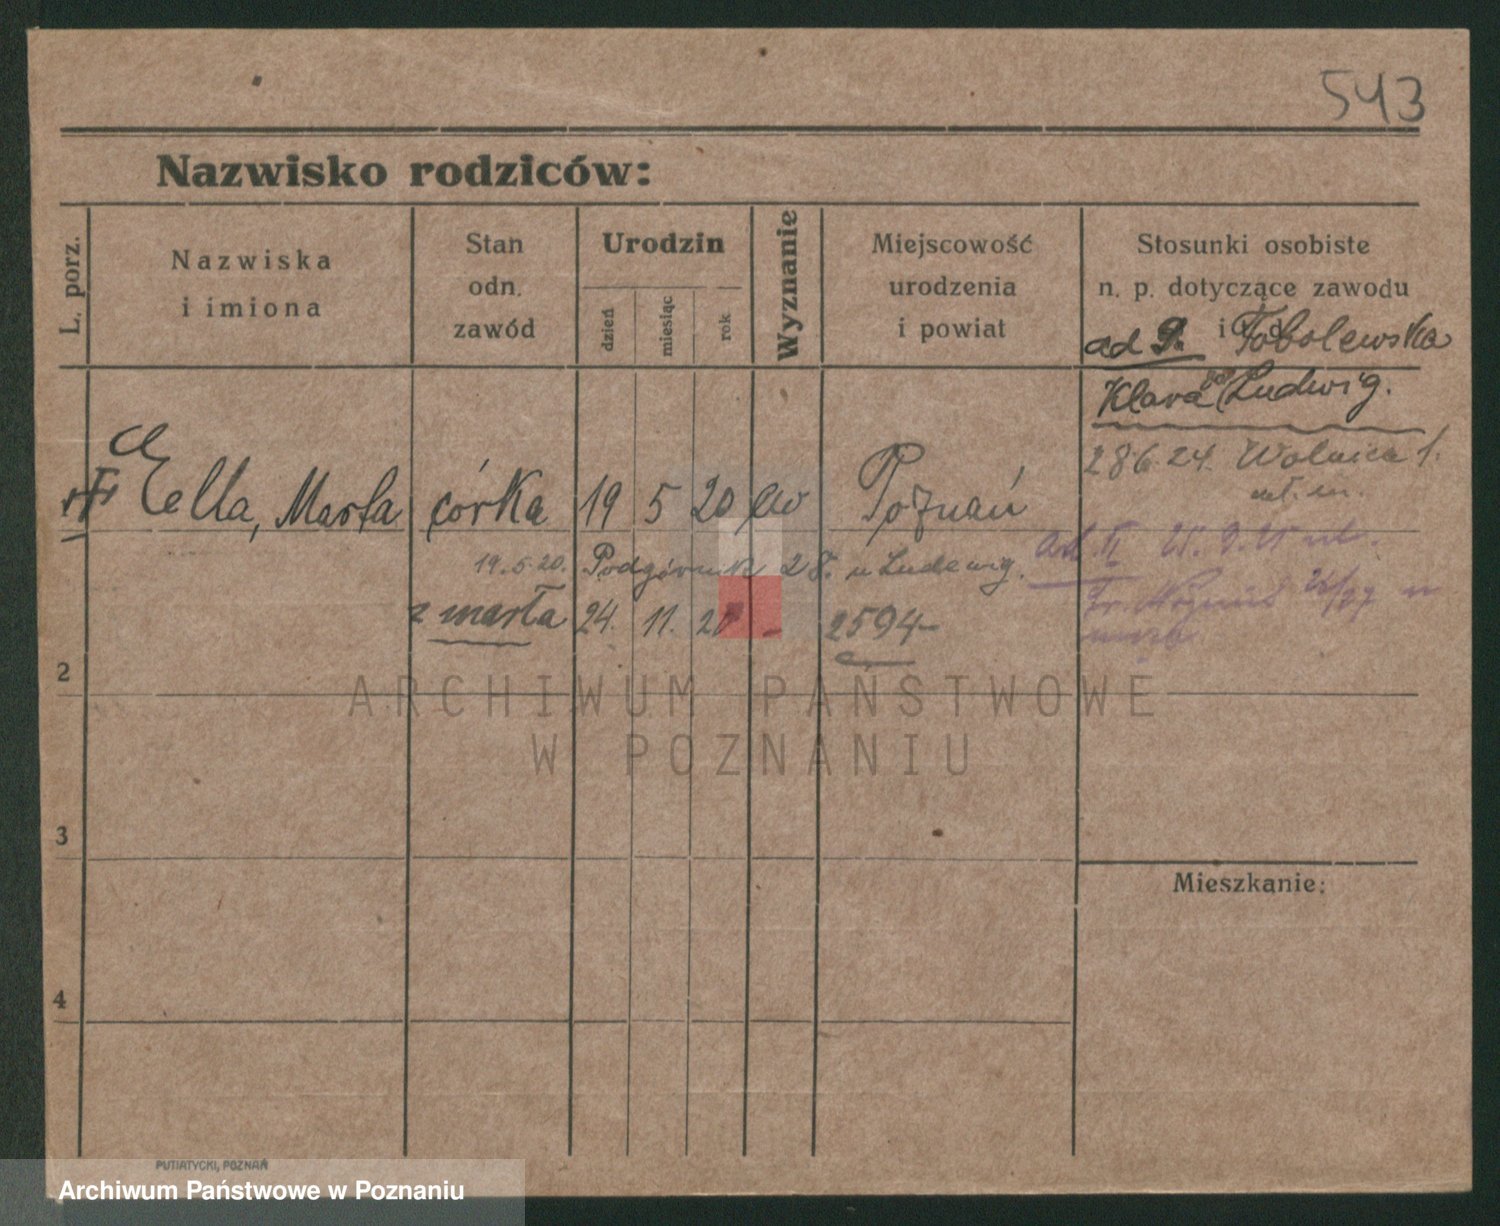 543
Nazwisko rodziców:
L. porz.
Nazwiska
i imiona
Stan
odn.
zawód
Urodzin
dzień
miesiąc
rok
Wyznanie
Miejscowość
urodzenia
i powiat
Stosunki osobiste
n. p. dotyczące zawodu
ad 9. Tobolewska
Klara Ludwig.
28.6.24. Wolnica 1.
Ella, Marta córka 19 5 20 ew Poznań
19.5.20. Podgórna 28. u Ludewig.
zmarła 24. 11. 20 - 2594
ad II 21. 9. 21
2
3
4
Mieszkanie:
ARCHIWUM PAŃSTWOWE
W POZNANIU
PUTIATYCKI, POZNAŃ
Archiwum Państwowe w Poznaniu